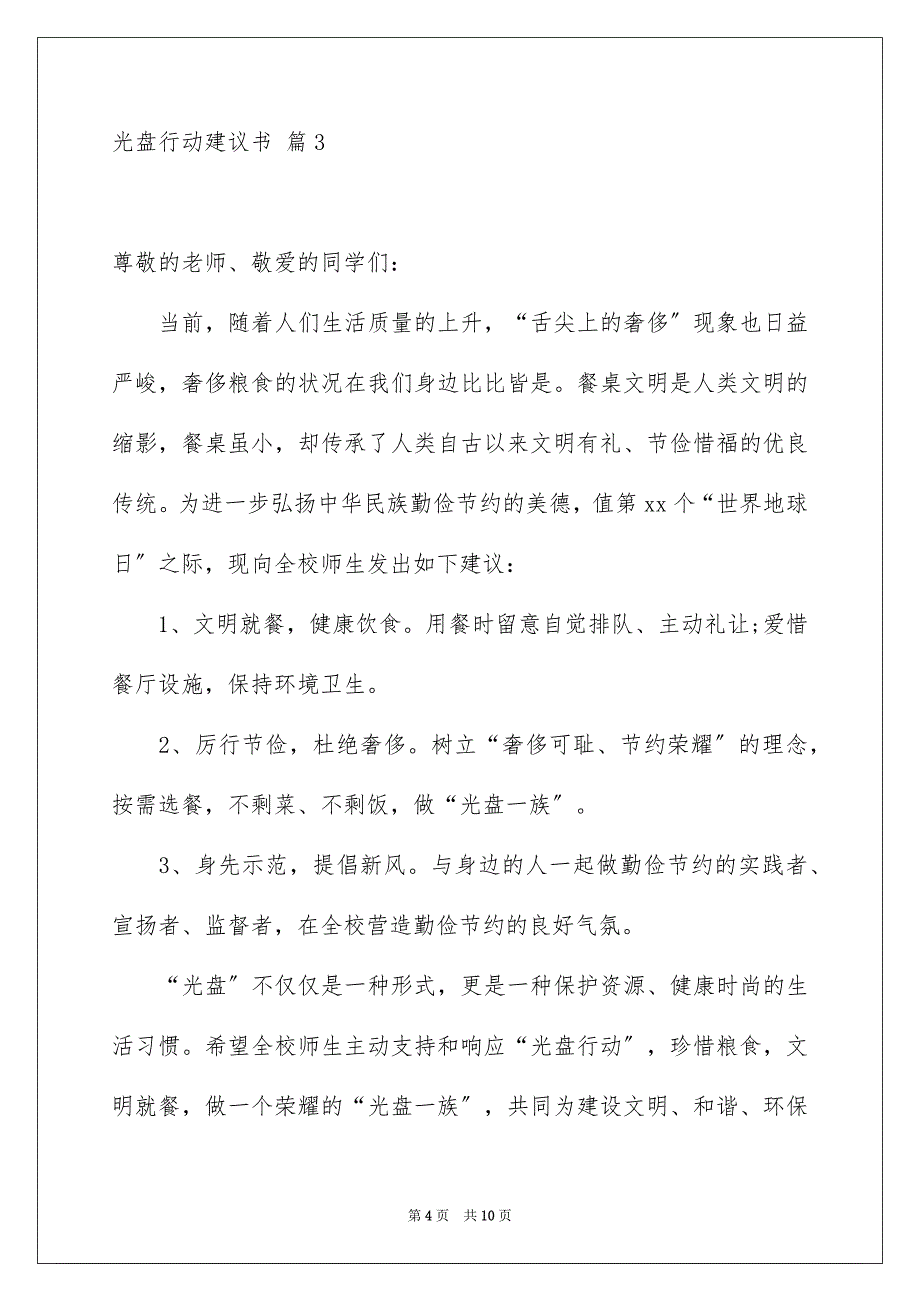 光盘行动建议书 篇3
尊敬的老师、敬爱的同学们：
当前，随着人们生活质量的上升，“舌尖上的奢侈〞现象也日益
严峻，奢侈粮食的状况在我们身边比比皆是。餐桌文明是人类文明的
缩影，餐桌虽小，却传承了人类自古以来文明有礼、节俭惜福的优良
传统。为进一步弘扬中华民族勤俭节约的美德，值第 xx 个“世界地球
日〞之际，现向全校师生发出如下建议：
1、文明就餐，健康饮食。用餐时留意自觉排队、主动礼让;爱惜
餐厅设施，保持环境卫生。
2、厉行节俭，杜绝奢侈。树立“奢侈可耻、节约荣耀〞的理念，
按需选餐，不剩菜、不剩饭，做“光盘一族〞。
3、身先示范，提倡新风。与身边的人一起做勤俭节约的实践者、
宣扬者、监督者，在全校营造勤俭节约的良好气氛。
“光盘〞不仅仅是一种形式，更是一种保护资源、健康时尚的生
活习惯。希望全校师生主动支持和响应“光盘行动〞，珍惜粮食，文
明就餐，做一个荣耀的“光盘一族〞，共同为建设文明、和谐、环保
第 4 页 共 10 页